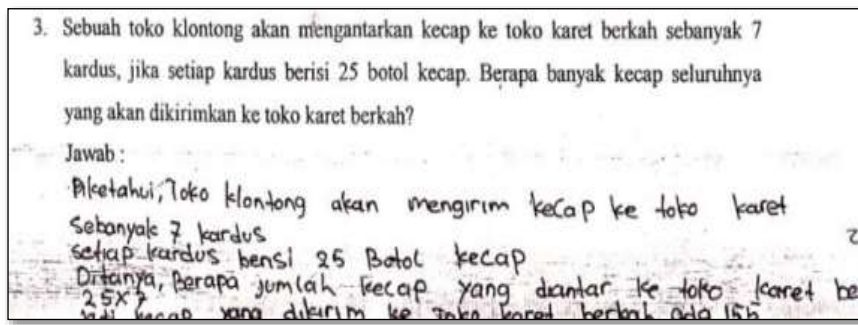 3. Sebuah toko klontong akan mengantarkan kecap ke toko karet berkah sebanyak 7
kardus, jika setiap kardus berisi 25 botol kecap. Berapa banyak kecap seluruhnya
yang akan dikirimkan ke toko karet berkah?
Jawab :
Diketahui, Toko klontong akan mengirim kecap ke toko karet
Sebanyak 7 kardus
setiap kardus berisi 25 Botol kecap
Ditanya, Berapa jumlah kecap yang diantar ke toko karet be
25x7
kecap yang dikirim ke toko karet berkah ada